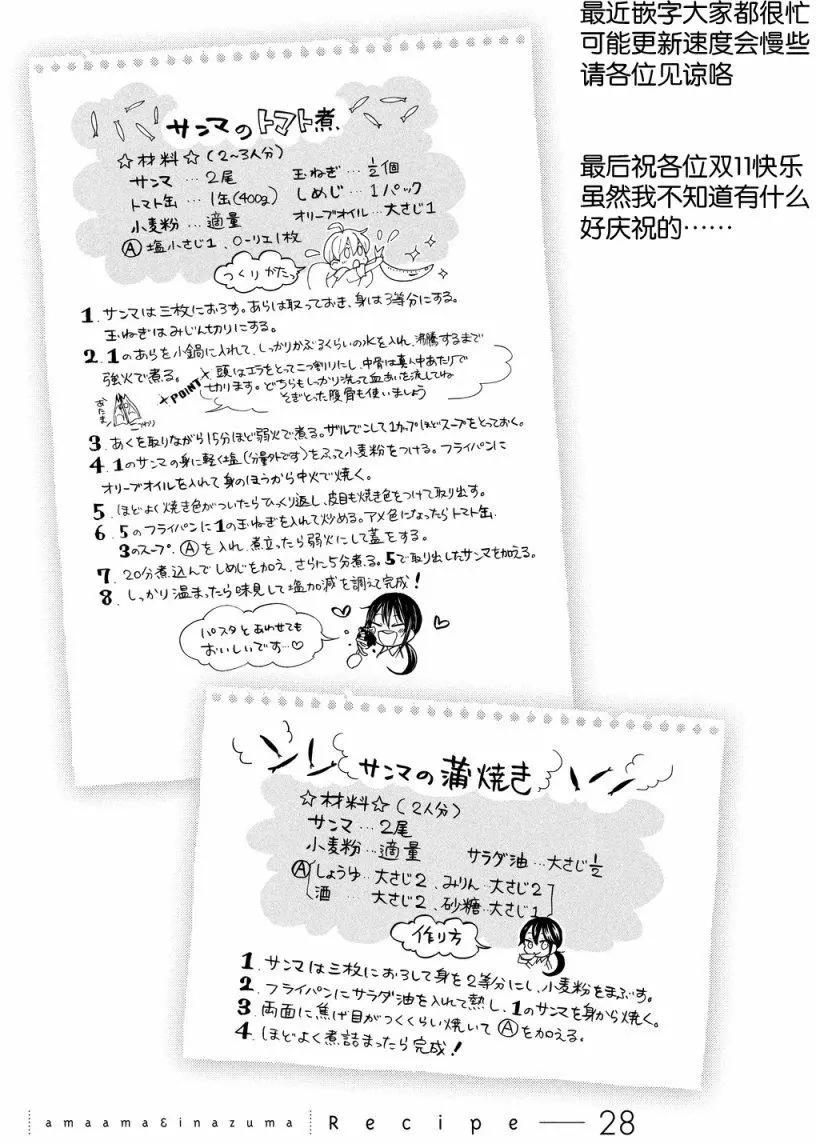 最近嵌字大家都很忙
可能更新速度会慢些
请各位见谅咯
最后祝各位双11快乐
虽然我不知道有什么
好庆祝的……
サンマのトマト煮
☆材料☆(2~3人分)
サンマ…2尾
玉ねぎ…½個
トマト缶…1缶(400g)
しめじ…1パック
小麦粉…適量
オリーブオイル…大さじ1
Ⓐ塩小さじ1、ローリエ1枚
つくりかたっ
1.サンマは三枚におろす。あらは取っておき、身は3等分にする。
玉ねぎはみじん切りにする。
2.1のあらを小鍋に入れて、しっかりかぶるくらいの水を入れ、沸騰するまで
強火で煮る。
POINT
頭はエラをとって二つ割りにし、中骨は真ん中あたりで
切ります。どちらもしっかり洗って血あいを流してね
そぎとった腹骨も使いましょう
あたま
3.あくを取りながら15分ほど弱火で煮る。ザルでこして1カップほどスープをとっておく。
4.1のサンマの身に軽く塩(分量外です)をふって小麦粉をつける。フライパンに
オリーブオイルを入れて身のほうから中火で焼く。
5.ほどよく焼き色がついたらひっくり返し、皮目も焼き色をつけて取り出す。
6.5のフライパンに1の玉ねぎを入れて炒める。アメ色になったらトマト缶・
3のスープ・Ⓐを入れ、煮立ったら弱火にして蓋をする。
7.20分煮込んでしめじを加え、さらに5分煮る。5で取り出したサンマを加える。
8.しっかり温まったら味見して塩加減を調えて完成!
パスタとあわせても
おいしいです…♡
サンマの蒲焼き
☆材料☆(2人分)
サンマ…2尾
小麦粉…適量
サラダ油…大さじ½
Ⓐしょうゆ…大さじ2、みりん…大さじ2
酒…大さじ2、砂糖…大さじ1
作り方
1.サンマは三枚におろして身を2等分にし、小麦粉をまぶす。
2.フライパンにサラダ油を入れて熱し、1のサンマを身から焼く。
3.両面に焦げ目がつくくらい焼いてⒶを加える。
4.ほどよく煮詰まったら完成!
amaama&inazuma Recipe 28